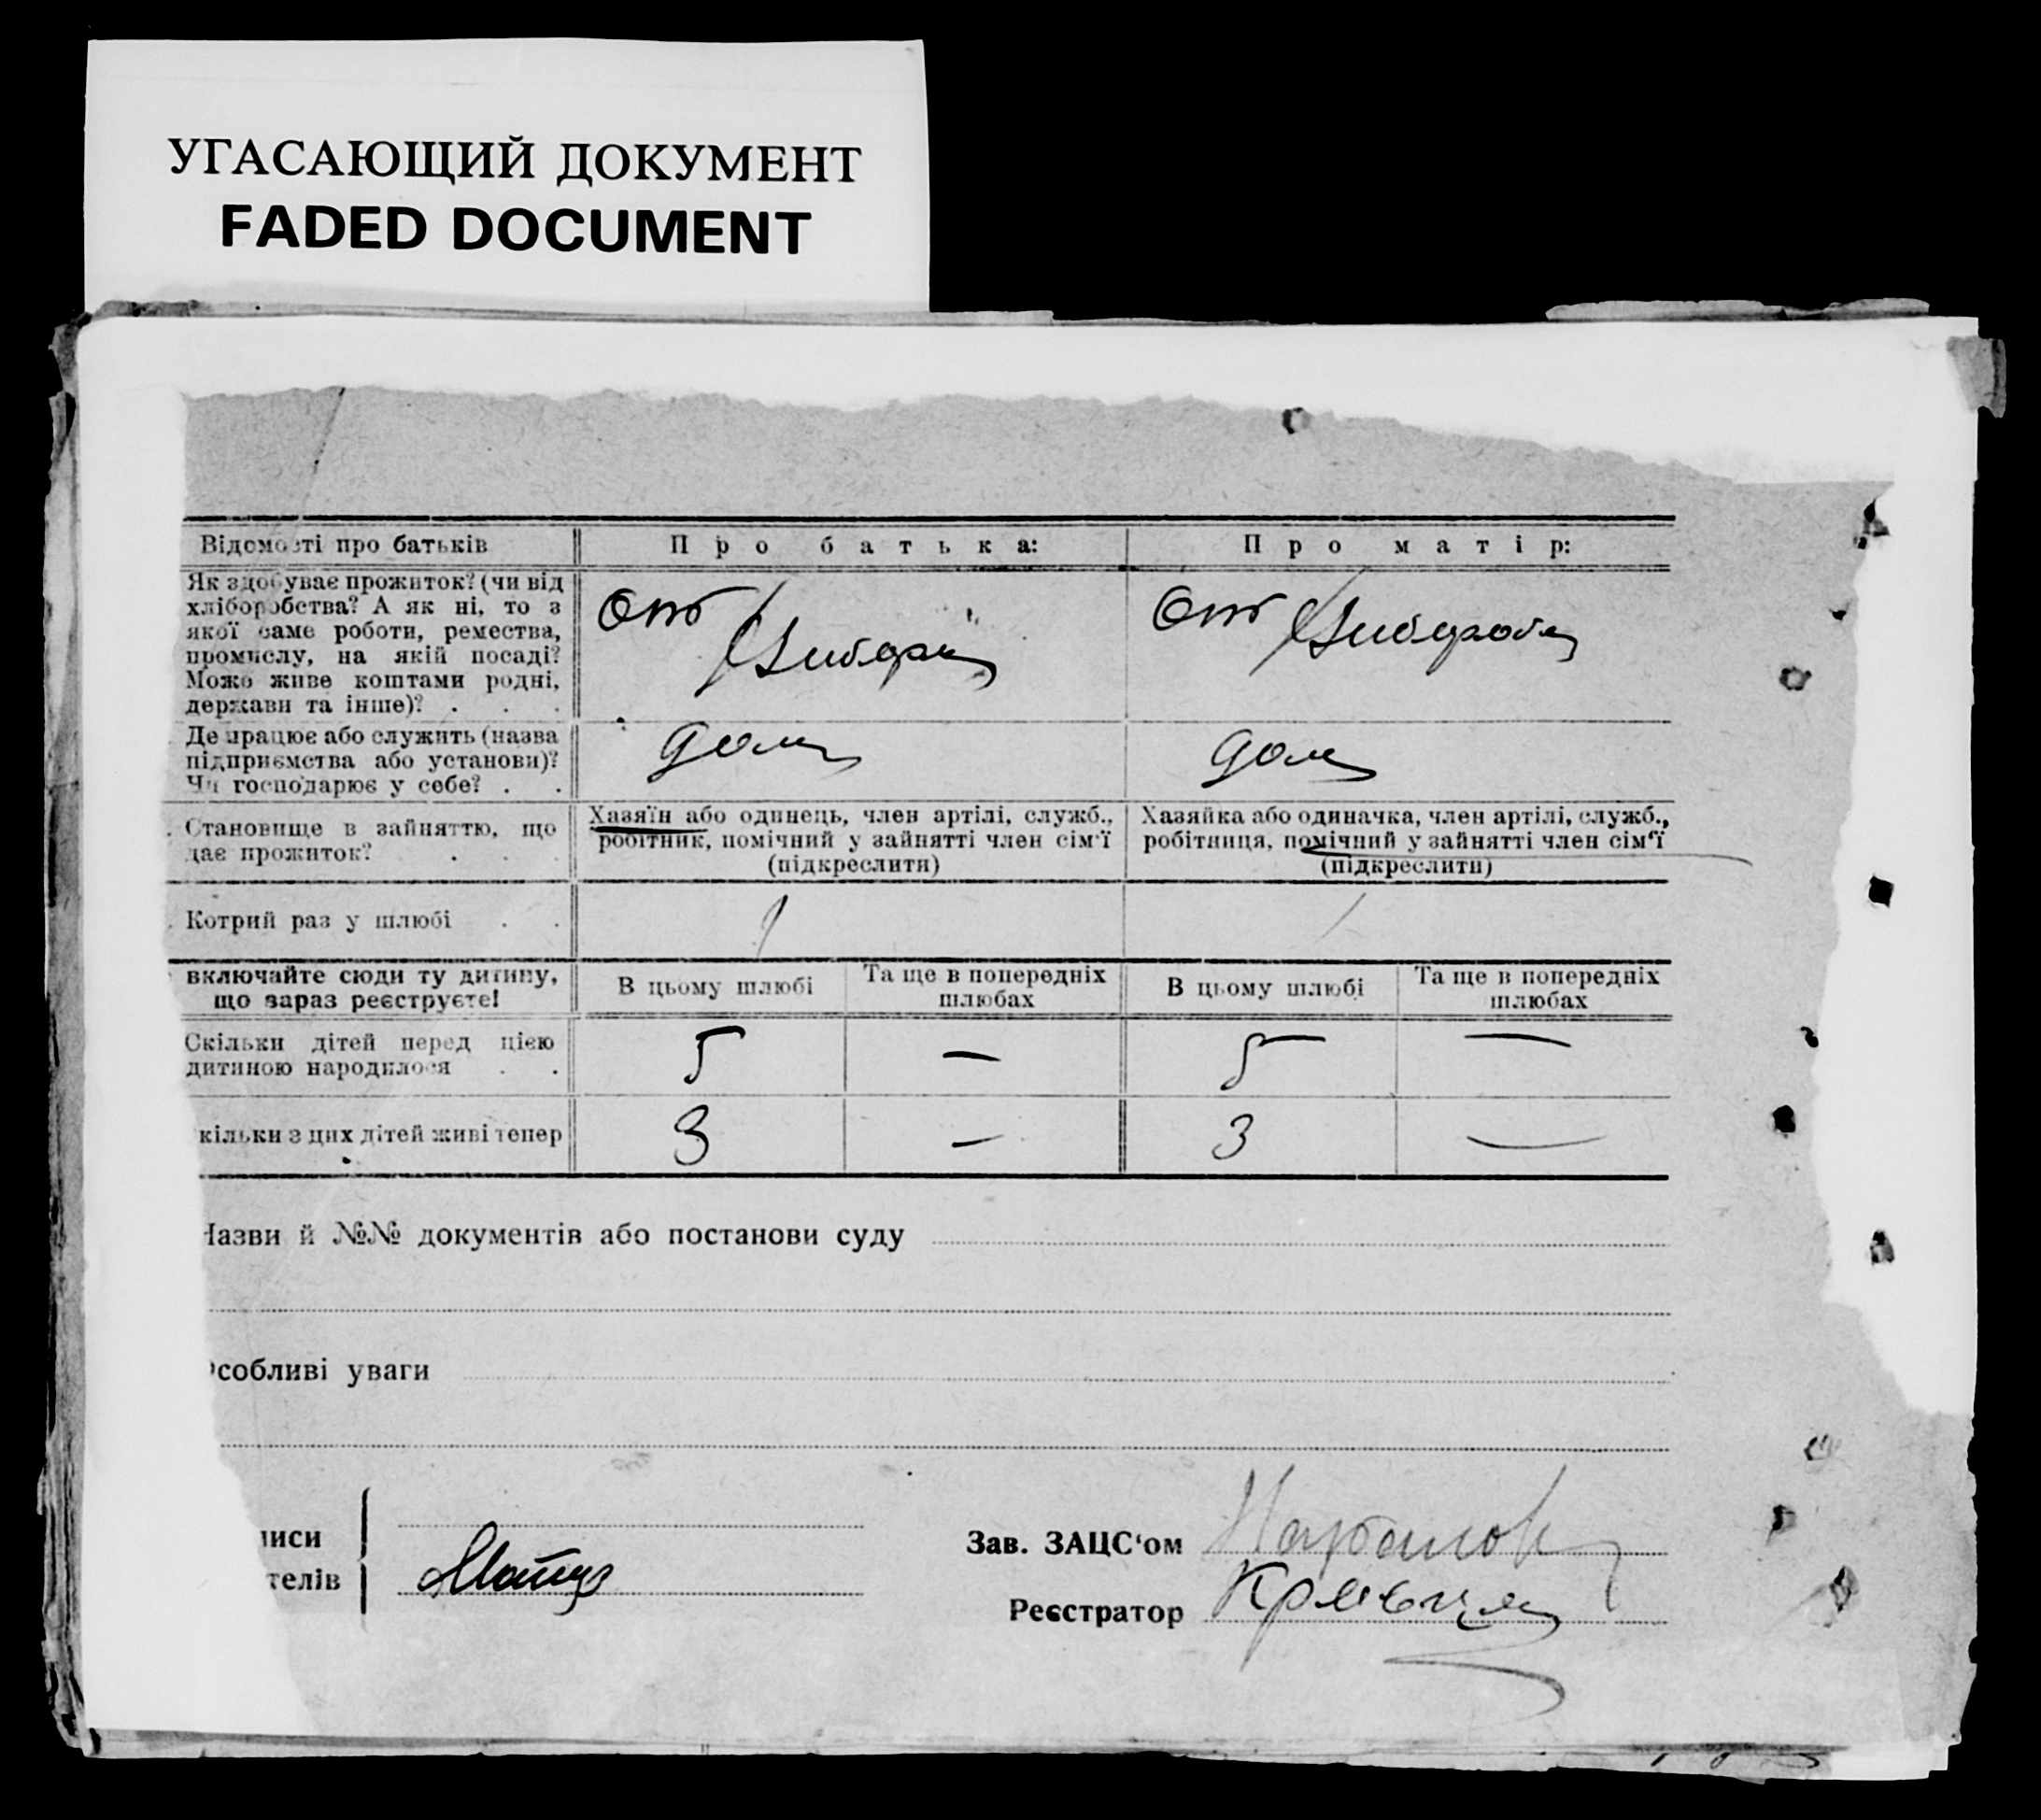 УГАСАЮЩИЙ ДОКУМЕНТ
FADED DOCUMENT
Відомості про батьків
Про батька:
Про матір:
Як здобуває прожиток? (чи від
хліборобства? А як ні, то з
якої саме роботи, ремества,
промислу, на якій посаді?
Може живе коштами родні,
держави та інше)? . . .
От
От
Де працює або служить (назва
підприємства або установи)?
Чи господарює у себе? . .
дома
дома
Становище в зайняттю, що
дає прожиток? . . .
Хазяїн або одинець, член артілі, служб.,
робітник, помічний у зайнятті член сім'ї
(підкреслити)
Хазяйка або одиначка, член артілі, служб.,
робітниця, помічний у зайнятті член сім'ї
(підкреслити)
Котрий раз у шлюбі . .
1
1
включайте сюди ту дитину,
що зараз реєструєте!
В цьому шлюбі
Та ще в попередніх
шлюбах
В цьому шлюбі
Та ще в попередніх
шлюбах
Скільки дітей перед цією
дитиною народилося . .
5
—
5
—
кільки з цих дітей живі тепер
3
—
3
—
Назви й №№ документів або постанови суду
собливі уваги
писи
телів
Зав. ЗАЦС'ом
Реєстратор